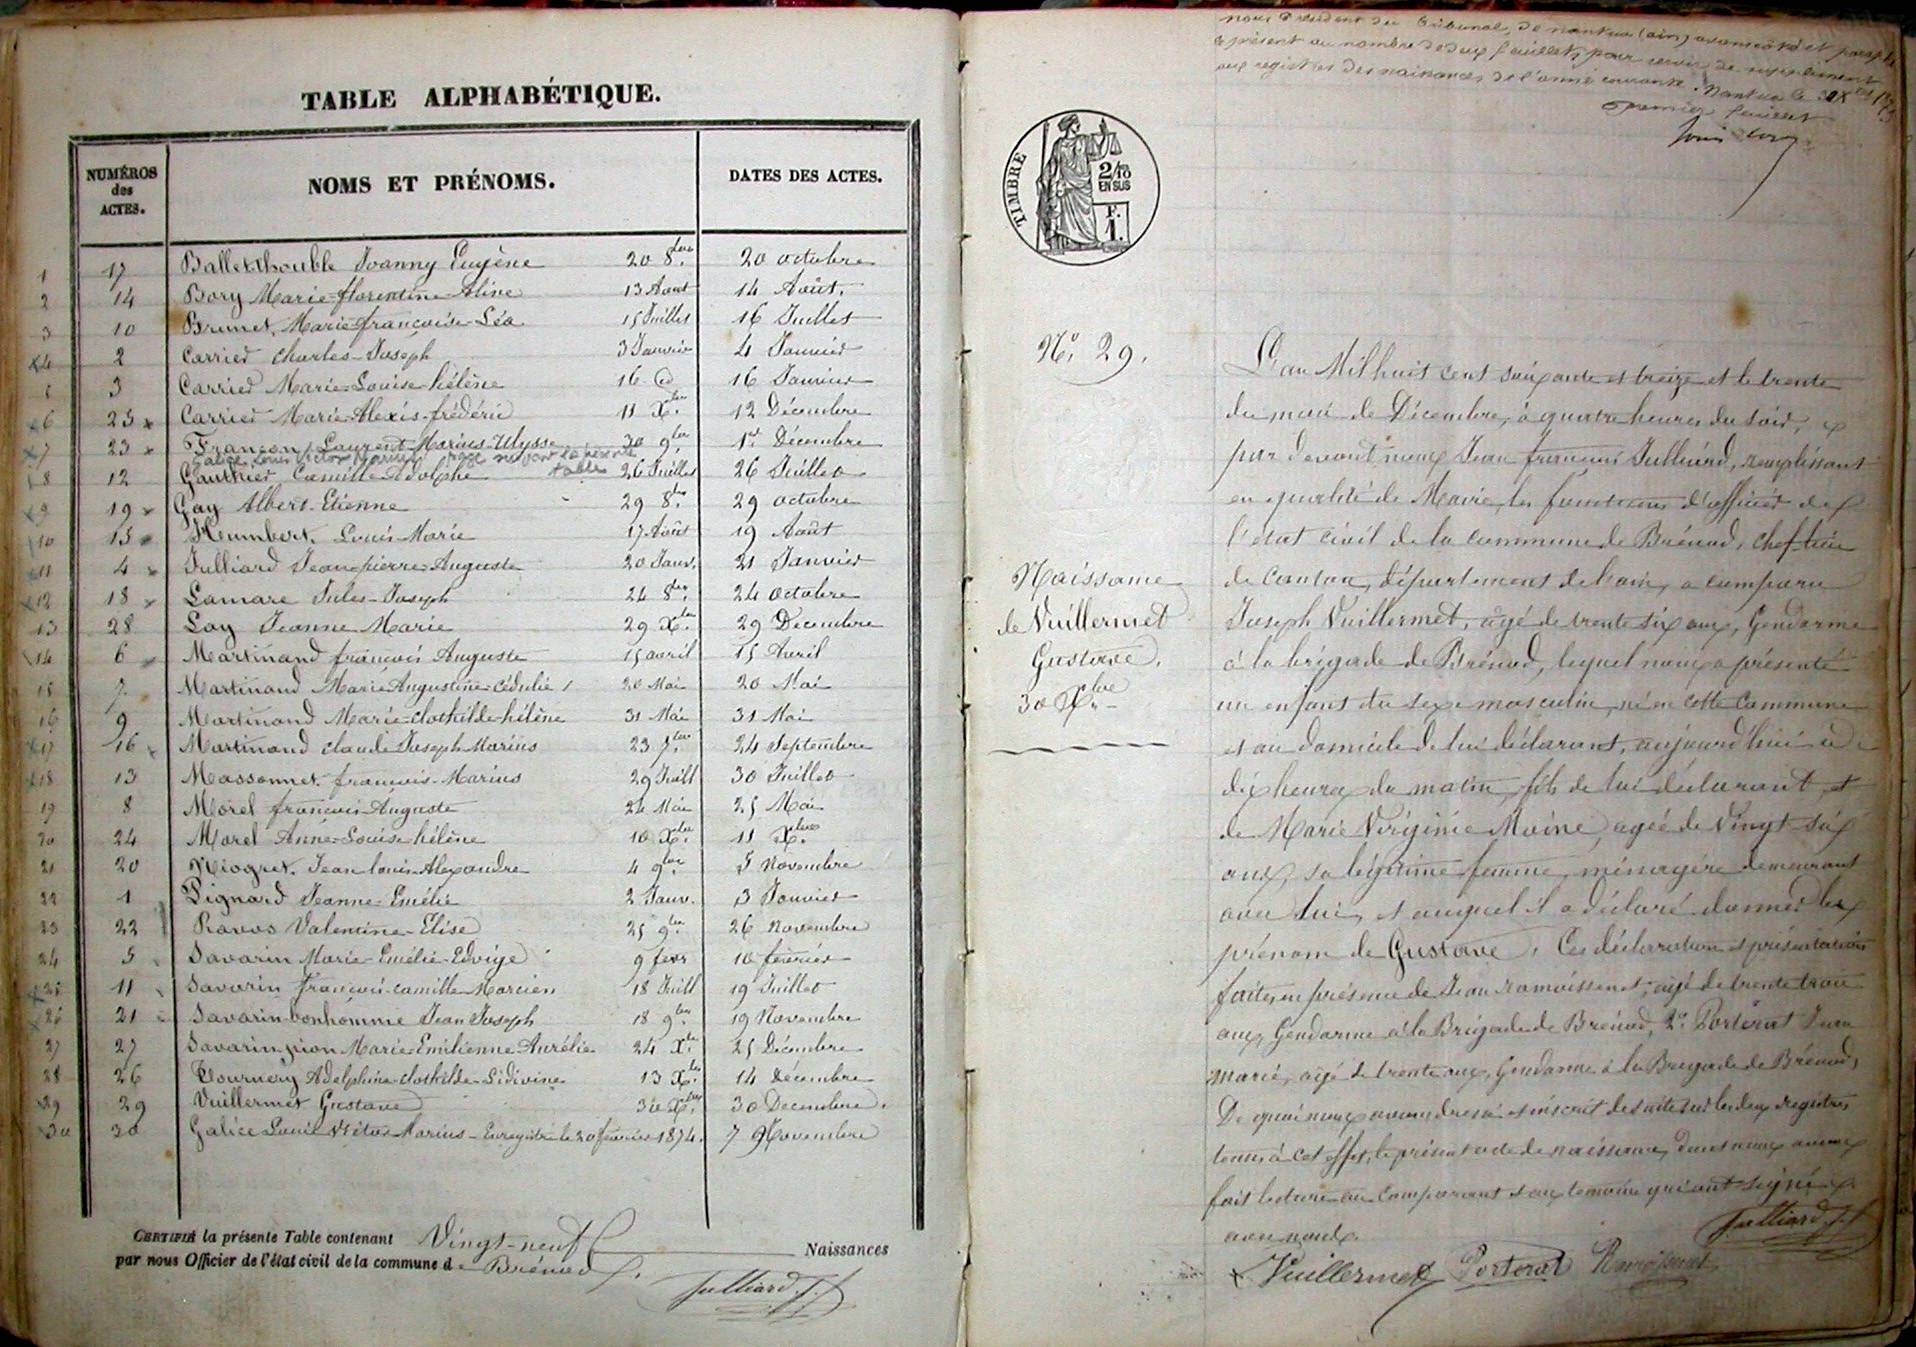 TABLE ALPHABÉTIQUE.
NUMÉROS des ACTES. NOMS ET PRÉNOMS. DATES DES ACTES.
1 17 Ballet-thouble Joanny Eugène 20 8.bre 20 octobre
2 14 Bory Marie-florentine-Aline 13 Aout 14 Août.
3 10 Brunet, Marie-françoise-Léa 15 Juillet 16 Juillet
4 2 Carrier charles-Joseph 3 Janvier 4 Janvier
3 Carrier Marie-Louise-hélène 16 16 Janvier
6 25 Carrier Marie-Alexis-frédéric 11 X.bre 12 Décembre
7 23 Françon Laurent-Marius-Ulysse 30 9bre 1er Décembre
Galice Louis Victor Marius table
8 12 Gauthier Camille-Adolphe 26 Juillet 26 Juillet
9 19 Gay Albert-Etienne 29 8.bre 29 octobre
10 15 Humbert, Louis-Marie 17 Août 19 Août
11 4 Julliard Jean-pierre-Auguste 20 Janv. 21 Janvier
12 18 Lamare Jules-Joseph 24 8bre 24 octobre
13 28 Lay Jeanne Marie 29 X.bre 29 Décembre
14 6 Martinand françois Auguste 15 avril 15 Avril
15 7 Martinand Marie Augustine-cédulie 20 Mai 20 Mai
16 9 Martinand Marie-clothilde-hélène 31 Mai 31 Mai
17 16 Martinand claude Joseph-Marius 23 7.bre 24 Septembre
18 13 Massonnet françois-Marius 29 Juill 30 Juillet
19 8 Morel françois-Auguste 24 Mai 25 Mai
20 24 Morel Anne-Louise-hélène 10 X.bre 11 X.bre
21 20 Niogret, Jean louis-Alexandre 4 9.bre 5 Novembre
22 1 Pignard Jeanne-Emélie 2 Janv. 3 Janvier
23 22 Ravos Valentine-Elise 25 9.bre 26 Novembre
24 5 Savarin Marie-Emélie-Edvige 9 fevr 10 février
25 11 Savarin françois-camille-Marcien 18 Juill 19 Juillet
26 21 Savarin-bonhomme Jean Joseph 18 9.bre 19 Novembre
27 27 Savarin-pion Marie-Emilienne-Aurélie 24 X.bre 25 Décembre
28 26 Tournery Adelphine-clothilde-Lidivine 13 X.bre 14 Décembre
29 29 Vuillermet Gustave 30 X.bre 30 Decembre.
30 30 Galice Louis Victor Marius - Enregistré le 20 février 1874. 7 9 Novembre
CERTIFIÉ la présente Table contenant Vingt-neuf Naissances
par nous Officier de l'état civil de la commune d e Brénod.
Julliard J.f
nous Président du tribunal de nantua (ain) avons coté et paraphé
le présent au nombre de deux feuillets pour servir de supplément
aux registres des naissances de l'année courante. Nantua le
premier feuillet
TIMBRE
2/10
EN SUS
F.
1.
N.o 29.
Naissance
de Vuillermet
Gustave.
30 X.bre
L'an Mil huit cent soixante et treize et le trente
du mois de Décembre, à quatre heures du soir,
par devant nous Jean françois Julliard, remplissant
en qualité de Maire, les fonctions d'officier de
l'état civil de la commune de Brénod, chef-lieu
de canton, département de l'ain, a comparu
Joseph Vuillermet, âgé de trente six ans, Gendarme
à la brigade de Brénod, lequel nous a présenté
un enfant du sexe masculin, né en cette commune
et au domicile de lui déclarant, aujourd'hui à
dix heures du matin, fils de lui déclarant et
de Marie Virginie Moine, agée de Vingt-six
ans, sa légitime femme, ménagère demeurant
avec lui, et auquel il a déclaré donner les
prénom de Gustave. Ces déclaration et présentation
faites en présence de Jean ramoissenet, âgé de trente trois
ans, Gendarme à la Brigade de Brénod, 2.o Portérat Jean
Marie, agé de trente ans, Gendarme à la Brigade de Brénod,
De quoi nous avons dressé et inscrit de suite sur les deux registres
tenus à cet effet, le présent acte de naissance, dont nous avons
fait lecture au comparant et aux temoins qui ont signé
avec nous.
Julliard J.f
Vuillermet Porterat Ramoissenet